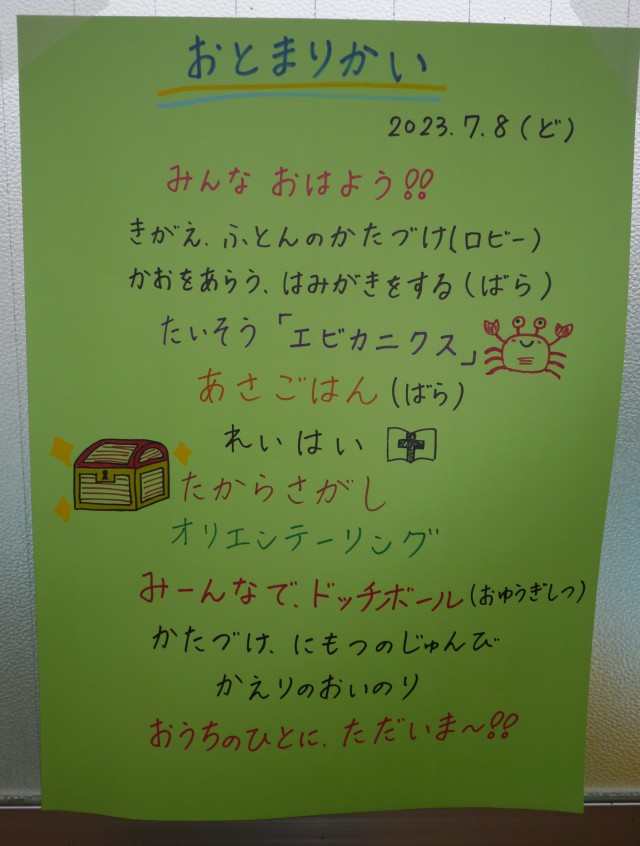 おとまりかい
2023.7.8(ど)
みんな おはよう!!
きがえ、ふとんのかたづけ(ロビー)
かおをあらう、はみがきをする(ばら)
たいそう「エビカニクス」
あさごはん(ばら)
れいはい
たからさがし
オリエンテーリング
みーんなで、ドッチボール(おゆうぎしつ)
かたづけ、にもつのじゅんび
かえりのおいのり
おうちのひとに、ただいま〜!!